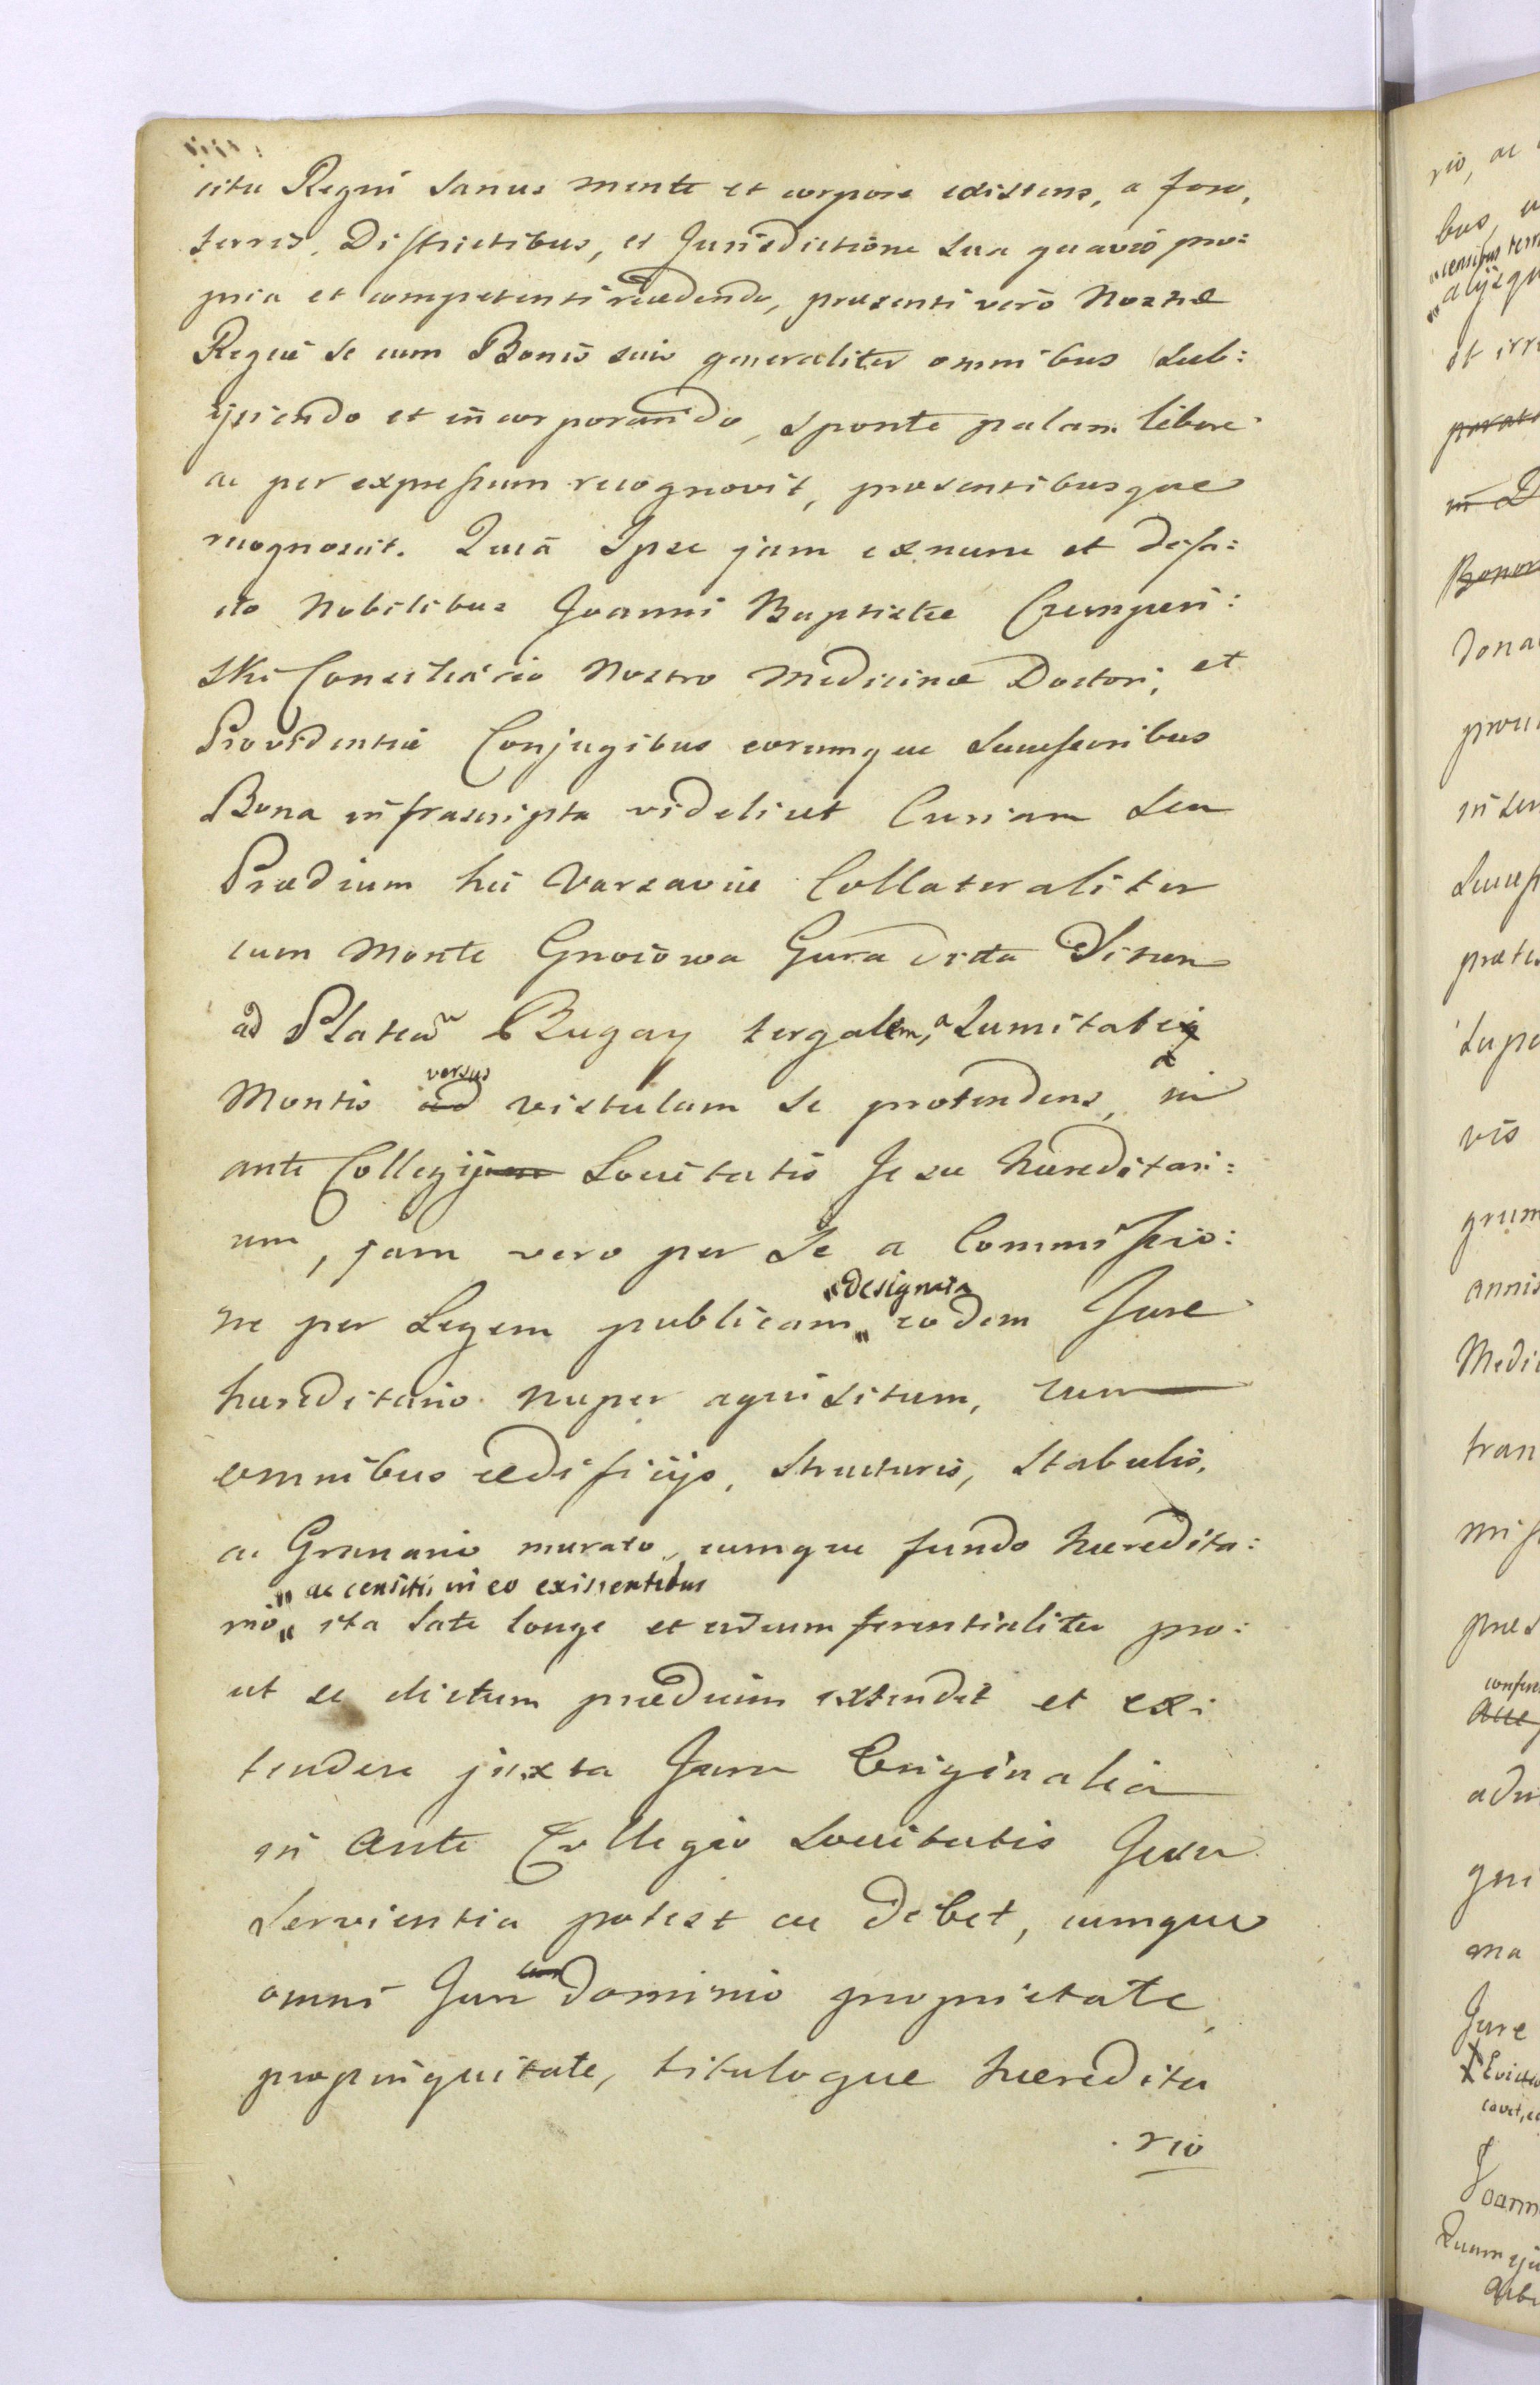 citu Regni Sanus mente et corpore existens, a foro,
terris, Districtibus, et Jurisdictione Sua quavis pro:
pria et competenti recedendo, præsenti verò Nostræ
Regiæ se cum Bonis suis generaliter omnibus Sub:
ijciendo et incorporando, sponte palam libere
ac per expressum recognovit, præsentibusque
recognoscit. Quia Ipse jam exnunc et defa:
cto Nobilibus Joanni Baptistæ Czempin:
ski Consiliario Nostro Medicinæ Doctori, et
Providentiæ Conjugibus eorumque Successoribus
Bona infrascripta videlicet Curiam Seu
Prædium hic Varsaviæ Collateraliter
cum Monte Gnoiowa Gura dicta Situm
ad Plateam Bugay tergalem, a Sumitate
Montis ad versus Vistulam se protendens, in
ante Collegij Societatis Jesu hæreditari:
um, jam vero per Se a Commissio:
ne per Legem publicam " eodem Jure
" designata
hæreditario nuper aquisitum, cum
omnibus ædificijs, Structuris, Stabulis,
ac Granario murato, cumque fundo hæredita:
" ac censitis in eo existentibus
rio " ita late longe et circumferentialiter pro:
ut se dictum prædium extendit et ex:
tendere juxta Jura Originalia
in Ante Collegio Societatis Jesu
Servientia potest ac debet, cumque
omni Jure dominio proprietate,
propinquitate, tituloque hæredita
rio